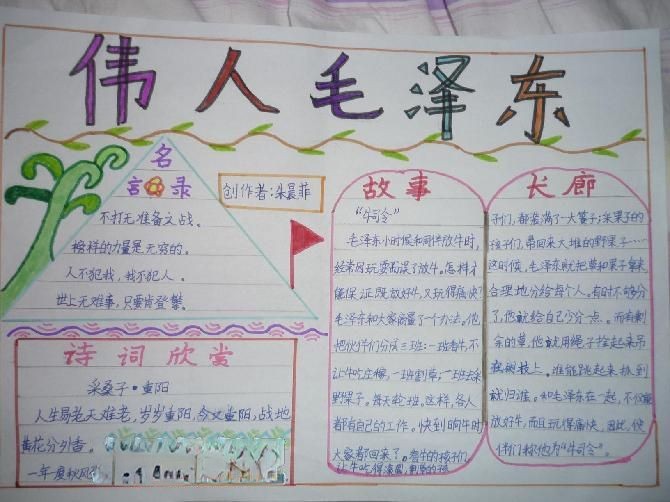 伟人毛泽东
名
言录
不打无准备之战。
榜样的力量是无穷的。
人不犯我,我不犯人。
世上无难事,只要肯登攀。
创作者:朱晨菲
诗词欣赏
采桑子·重阳
人生易老天难老,岁岁重阳,今又重阳,战地
黄花分外香。
一年一度秋风
故事
“牛司令”
毛泽东小时候和同伴放牛时,
经常因玩耍耽误了放牛。怎样才
能保证既放好牛,又玩得痛快?
毛泽东和大家商量了个办法。他
把伙伴们分成三班:一班看牛,不
让牛吃庄稼,一班割草;一班去采
野果子。每天轮班。这样,各人
都有自己的工作。快到晌午时
大家都回来了。看牛的孩子们
让牛吃得滚圆,割草的孩
长廊
子们,都装满了一大篮子;采果子的
孩子们,带回来大堆的野果子……
这时候,毛泽东就把草和果子拿来,
合理地分给每个人。有时不够分
了,他就给自己少分一点。而有剩
余的草,他就用绳子拴起来吊
在树枝上。谁能跳起来抓到
就归谁。和毛泽东在一起,不仅能
放好牛,而且玩得痛快,因此,伙
伴们称他为“牛司令”。